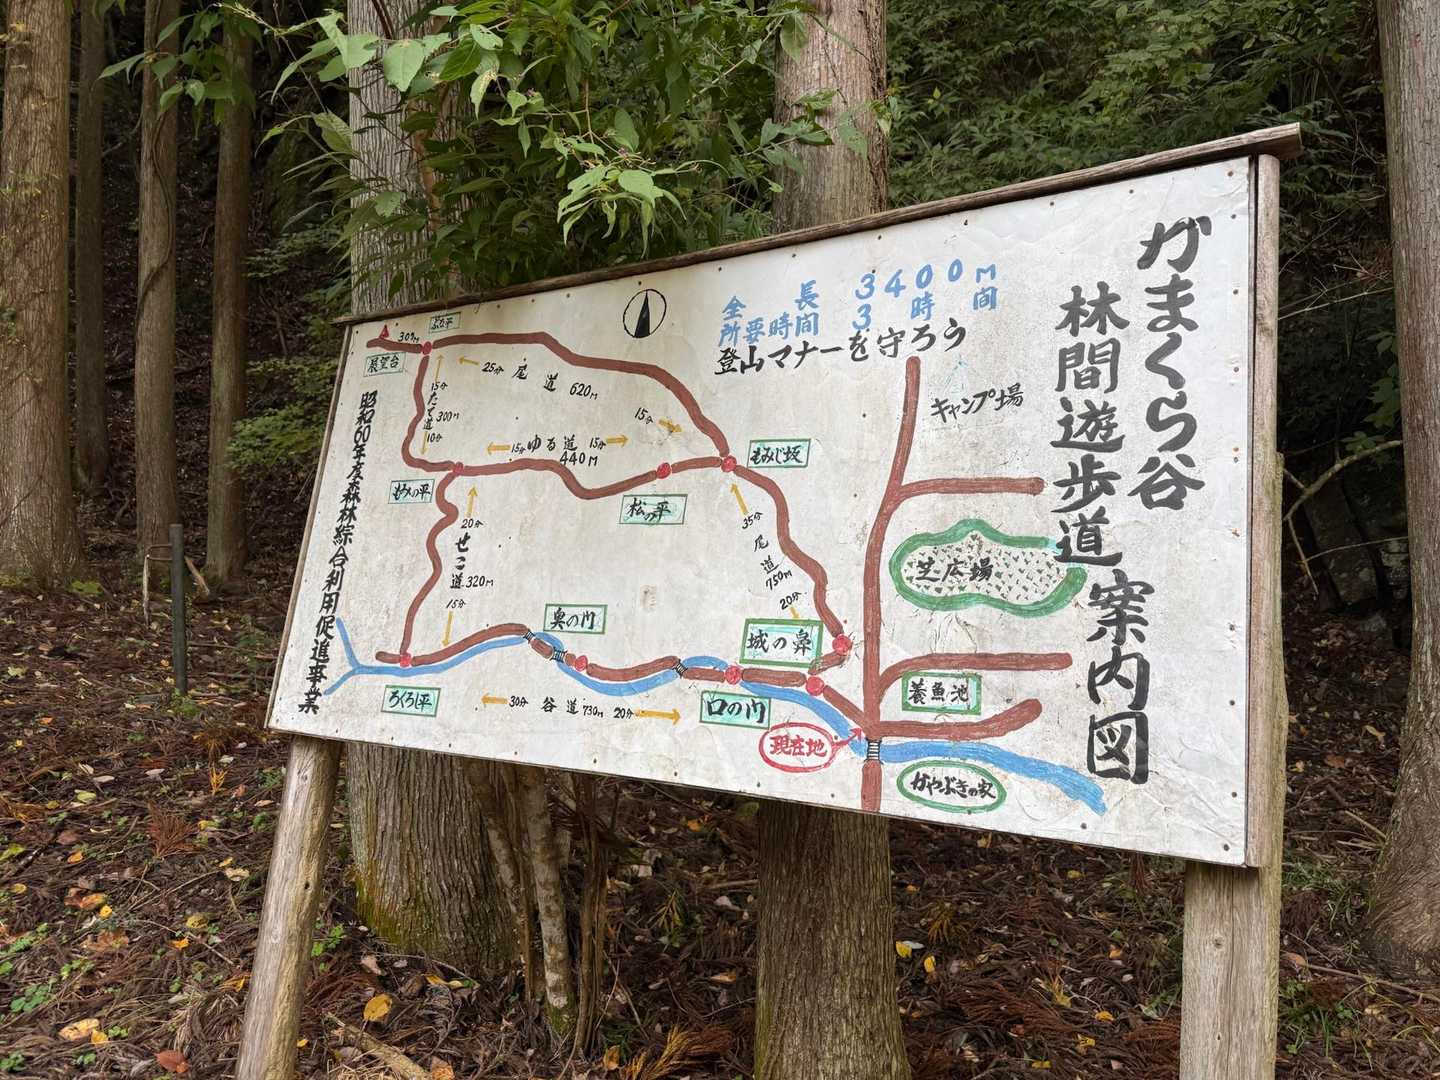 がまくら谷
林間遊歩道案内図
全長 3400m
所要時間 3時間
登山マナーを守ろう
キャンプ場
芝広場
養魚池
かやぶきの家
現在地
城の鼻
口の門
奥の門
ろくろ平
もみじ坂
松の平
もみの平
ぶな平
展望台
30m
25分 尾道 620m
15分
15分
たて道
300m
10分
15分 ゆる道 15分
440m
35分
尾道
750m
20分
20分
せこ道 320m
15分
30分 谷道 730m 20分
昭和60年度森林綜合利用促進事業